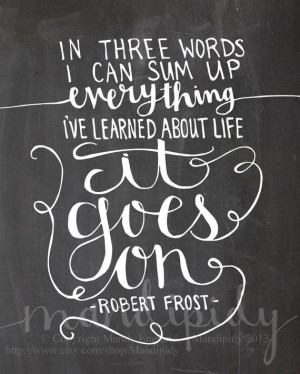 IN THREE WORDS
I CAN SUM UP
everything
I'VE LEARNED ABOUT LIFE
it
goes
on
-ROBERT FROST-
mandipidy
http://www.etsy.com/shop/Mandipidy